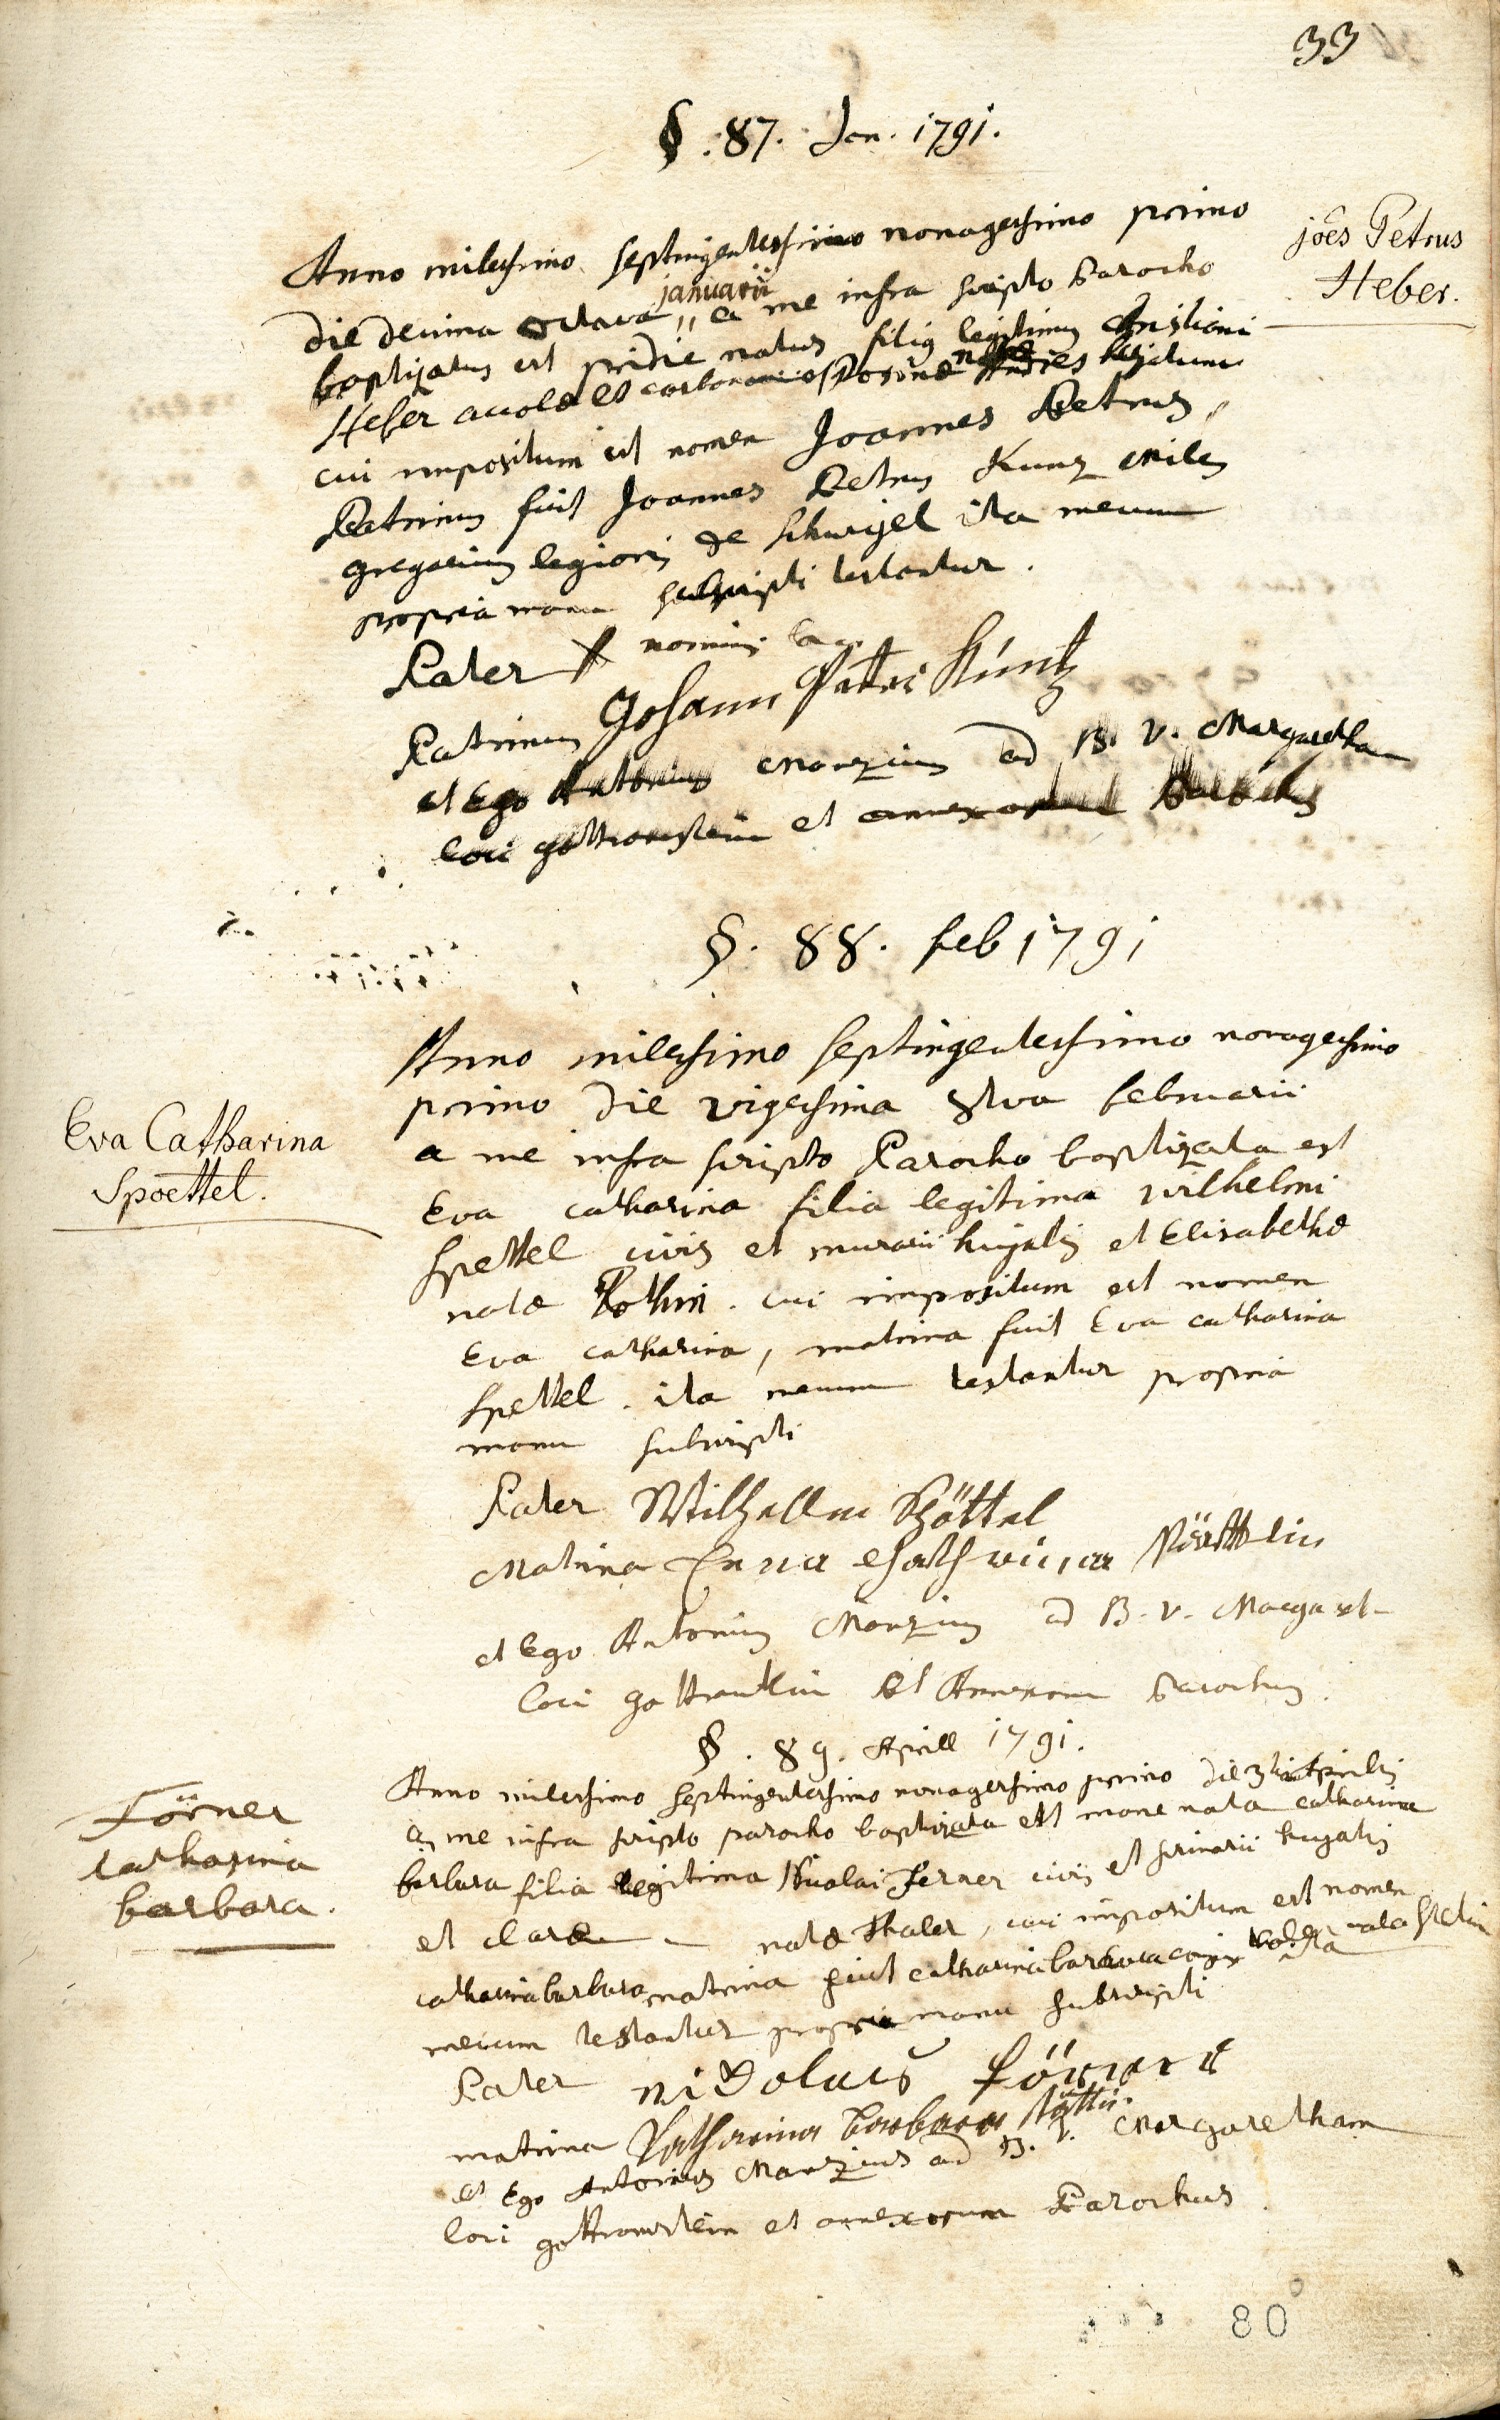 33
§. 87. Jan. 1791.
joês Petrus
Heber.
Anno millessimo septingentessimo nonagessimo primo
die decima octava januarii a me infra scripto Parocho
baptizatus est pridie natus filiq legitimus Christiani
Heber accolae et carbonarii
cui impositum est nomen Joannes Petrus,
Patrinus fuit Joannes Petrus Kunz miles
gregarius legionis de ita mecum
propria manu subscripti testantur.
Pater nominis
Patrinus Johann Petter Küntz
et Ego Antonius Manzius ad B. V. Margaretham
loci gottramstein et annexorum Parochus
§. 88. feb 1791
Eva Catharina
Spoettel.
Anno millessimo septingentessimo nonagessimo
primo die vigessima 8tva februarii
a me infra scripto Parocho baptizata est
Eva catharina filia legitima wilhelmi
spettel civis et murarii hujatis et Elisabethæ
natæ Rothin. cui impositum est nomen
Eva catharina, matrina fuit Eva catharina
spettel. ita mecum testantur propria
manu subscripti
Pater Wilhellm Spöttel
Matrina
et Ego Antonius Manzius ad B. V. Margaret-
loci gottramstein et Annexorum Parochus.
§. 89. Aprill 1791.
Förner
catharina
barbara.
Anno millessimo septingentessimo nonagessimo primo die Aprilis
a me infra scripto parocho baptizata est mane nata catharina
barbara filia legitima Nicolai Ferner civis et scrinarii hujatis
et claræ natæ Thaler, cui impositum est nomen
catharina barbara matrina fuit catharina barbara nata
mecum testantur propria manu subscripti
Pater nickolaus förner
matrina Catharina barbara
et Ego Antonius Manzius ad B. V. Margaretham
loci gottramstein et annexorum Parochus.
80